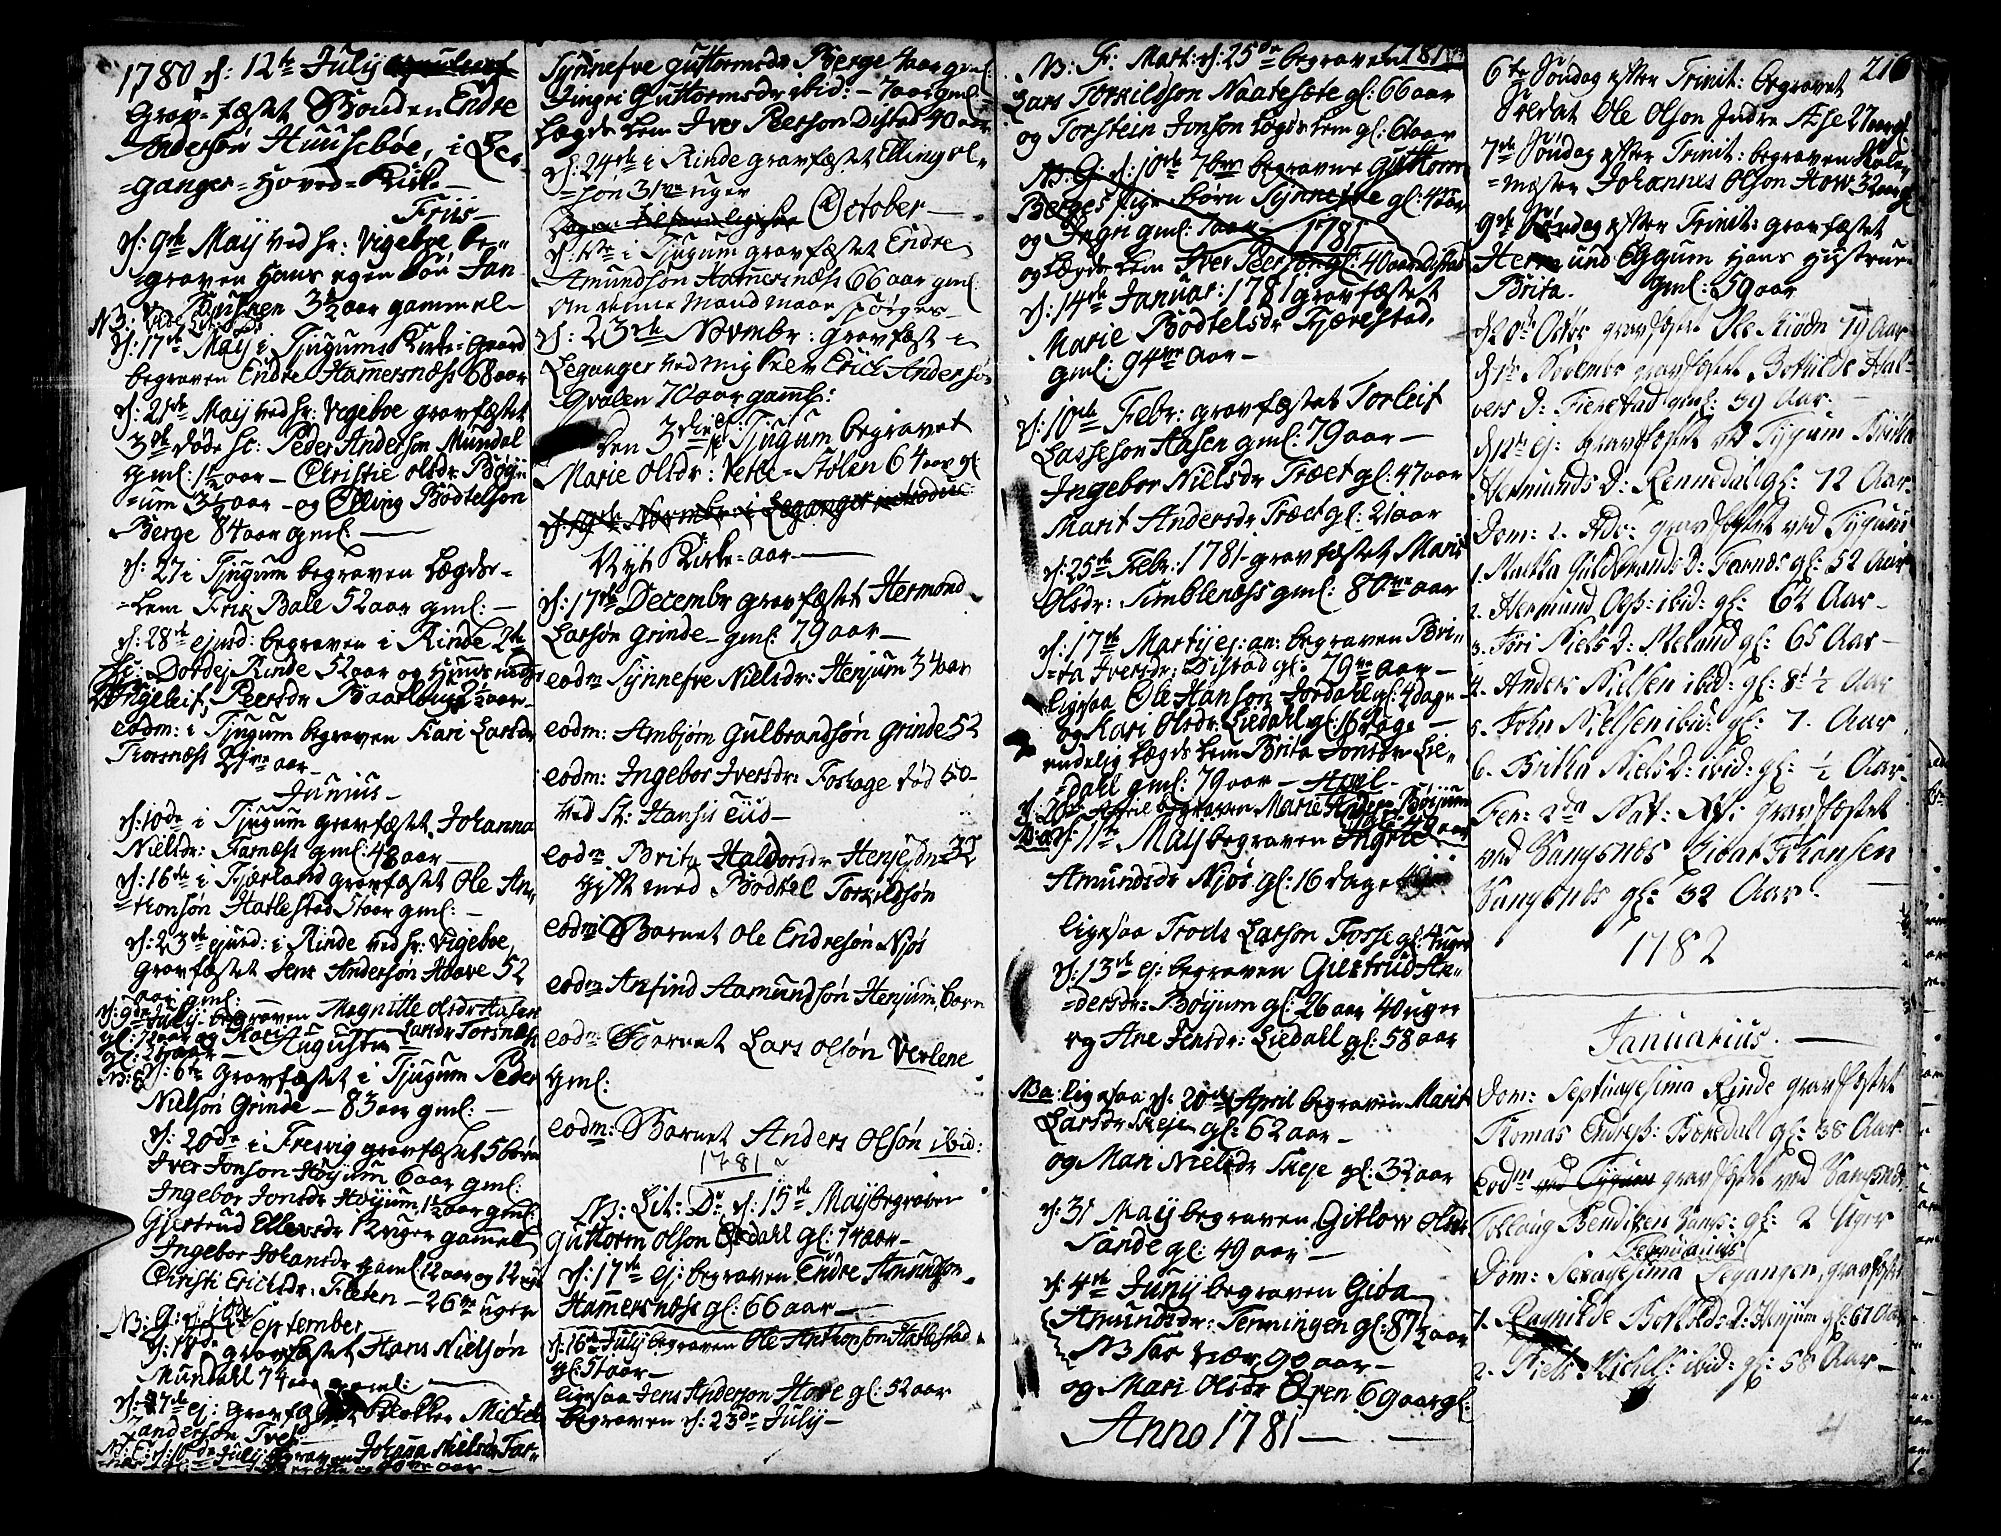 1780 d: 12te July
Grav-fæstet Bonden Endre
Anderson Huusebøe, i Le-
=ganger=Hoved=Kirke —
Friis —
d: 9de Maij ved hr: Vigeboe be-
=graven Hans egen Søn Jan
3½ aar gammel
d: 17de Maij i Tjugums Kirke=Gaard
begraven Endre Hamersnæss 68 aar
d: 21de Maij ved hr: Vigeboe gravfæstet
3de døde sc: Peder Anderson Mundal
gml: 1½ aar — Christie olsdr Bøiju
=um 3½ aar — og Elling Bødtelson
Berge 84 aar gml: —
d: 27 i Tjugum begraven Lægds-
=lem Frik Bale 52 aar gml: —
d: 28de ejusd: begraven i Rinde 2de
sc: Dordej Rinde 52 aar og
Ingeleif Peersdr
eodm: i Tjugum begraven Kari Larsdr
Thorsnæss 21 aar —
Junius —
d: 10de i Tjugum gravfæstet Johanna
Nielsdr: Farnæss gml: 48 aar —
d: 16de i Fjærland gravfæstet Ole An-
=tonsøn Hatlestad 51 aar gml: —
d: 23de ejusd: i Rinde ved hr: Vigeboe
gravfæstet Jens Andersøn Hove 52
aar gml:
d: 9de July begraven Magnille olsdr Hasen
gl: 72 aar og Kari Larsdr Torsnæss
gl: 21 aar — Augustii
d: 6te Gravfæstet i Tjugum Peder
Nielsøn Grinde — 83 aar gml: —
d: 20de i Fresvig gravfæstet 5 børn
Iver Jonson Høyum 6 aar gml:
Ingebor Jonsdr Høyum 1½ aar gml:
Gjertrud Ellevsdr 12 uger gamel
Ingebor Johansdr gaml: 12 aar og 12 uger
Christi Ericksdr: Fleten — 26 uger
September
d: 18de gravfæstet Hans Nielsøn
Mundall 74 aar gaml: —
ej: gravfæstet Klokker Michel
Anderson Tvet —
July begraven Johana Nielsdr Far-
Synnefve Guttormsdr Berge 4 aar gml:
Jingri Guttormsdr ibid: — 7 aar gml:
Lægds Lem Iver Peerson Distad 40 aar
d: 24de i Rinde gravfæstet Elling ol-
=son 31 uger
October —
d: 1te i Tjugum gravfæstet Endre
Amundson Hamersnæss 66 aar gml:
Om denne Mand maae spørges —
d: 23de Novmbr: Gravfæst i
Leganger ved mig Peer Erich Andersøn
Qvalen 70 aar gaml:
den 3die i Tjugum begravet
Marie Olsdr: Vetle=Stølen 64 aar gl
Nyt Kirke=aar —
d: 17de Decembr gravfæstet Hermond
Larsøn Grinde — gml: 79 aar —
eodm Synnefve Nielsdr: Henjum 34 aar
eodm: Ambjørn Gulbrandsøn Grinde 52
eodm: Ingebor Iversdr: Foshage død 50 —
ved St: Hansis tiid —
eodm Brita Haldorsdr Henjesdn 32
Gift med Bødtel Torkildsøn
eodm: Barnet Ole Endresøn Njøs
eodm Anfind Aamundsøn Henjum, barn
eodm: Barnet Lars olsøn Veelene
gml:
eodm: Barnet Anders Olsøn ibid:
1781
NB: Lit: D: d: 15de Maij begraven
Guttorm olson Ordahl gl: 74 aar —
d: 17de ej: begraven Endre Amundson
Hamersnæss gl: 66 aar —
d: 16de July begraven Ole Antonson Hatlestad
gl: 51 aar —
ligesaa Jens Anderson Hove gl: 52 aar
begraven d: 23de July —
NB: Fr: Mart: d: 25de begraven 1781
Lars Torkildson Naatesete gl: 66 aar
og Torstein Jonson Lægds Lem gl: 61 aar
NB: G: d: 10de 7bris begravne Guttorm
Berges pige-børn Synnefve gl: 4 aar
og Ingri gml: 7 aar — 1781
og Lægds Lem Iver Peerson gl: 40 aar Distad
d: 14de Januar: 1781 gravfæstet
Marie Bødtelsdr Fjærestad,
gml: 94 aar —
d: 10de Febr: gravfæstet Torleif
Lasseson Hasen gml: 79 aar —
Ingebor Nielsdr Træet gl: 47 aar
Marit Andersdr Træet gl: 21 aar
d: 25de Febr: 1781 gravfæstet Maris
Olsdr: Simblenæss gml: 80 aar
d: 17de Martij ej: an: begraven Bri-
=ta Iversdr: Distad gl: 79 aar —
ligesaa Ole Hanson Jordahl gl: 4 dage
og Kari Olsdr Liedahl gl: 16 dage —
endelig Lægds Lem Brita Jonsdr Lie-
=dall gml: 79 aar —
d: 20de April begraven Marie Anders: Bøijum
d: 11te Maij begraven
Amundsdr Njøs gl: 16 dage
ligesaa Trods Larson Fosse gl: 4 uger
d: 13de ej: begraven Giertrud An-
=dersdr: Bøyum gl: 26 aar 40 uger
og Ane Jensdr: Liedall gl: 58 aar
NBa: ligesaa d: 20de April begraven Marit
Larsdr Skeje gl: 62 aar —
og Mari Nielsdr Skeje gl: 32 aar
d: 31 Maij begraven Gitlow Olsdr
Sande gl: 49 aar —
d: 4de Junij begraven Giøa
Amundsdr: Tenningen gl: 87½ aar
NB: 90 aar —
og Mari Olsdr Øren 69 aar gl:
Anno 1781 —
216
6te Søndag efter Trinit: begravet
Soldat Ole Olson Indre Ase 27 aar gl
7de Søndag efter Trinit: begraven Skole-
=mæster Johannes Olson How 32 aar gl
9de Søndag efter Trinit: gravfæstet
Hermund Eggum Hans Hustrue
Brita. gml: 59 aar
d 20de Octbr gravfæstet Ole 79 Aar
d 1te November gravfæstet Botilde Hal-
vers D: Fierestad gml: 39 Aar. —
ej: gravfæstet ved Tygum Britha
Hermunds D: Rennedall gl: 72 Aar.
Dom: 2. Adv: gravfæstet ved Tygum
1. Martha Guldbrands D: Farnæs gl: 52 Aar
2. Hermund Oless: ibid: gl: 64 Aar —
3. Jøri Niels D: Meland gl: 65 Aar —
4. Anders Nielsen ibid: gl: 8½ Aar
5. John Nielsen ibid: gl: 7. Aar
6. Britha Niels D: ibid: gl: ½ Aar
Fer: 2da Nat: Xti gravfæstet
ved Vangsnes Johansen
Vangsnes gl: 32 Aar.
1782
Januarius. —
Dom: Septuagesima Rinde gravfæstet
Thomas Endress: Børedall gl: 38 Aar
Eodm gravfæstet ved Vangsnes
Tollaug Bendixen Vangs: gl: 2 Uger
Februarius
Dom: Sexagesima Leganger, gravfæstet
1. Ragnilde Botholds D: Henjum gl: 67 Aar
2. Niels Michels: ibid: gl: 58 Aar —